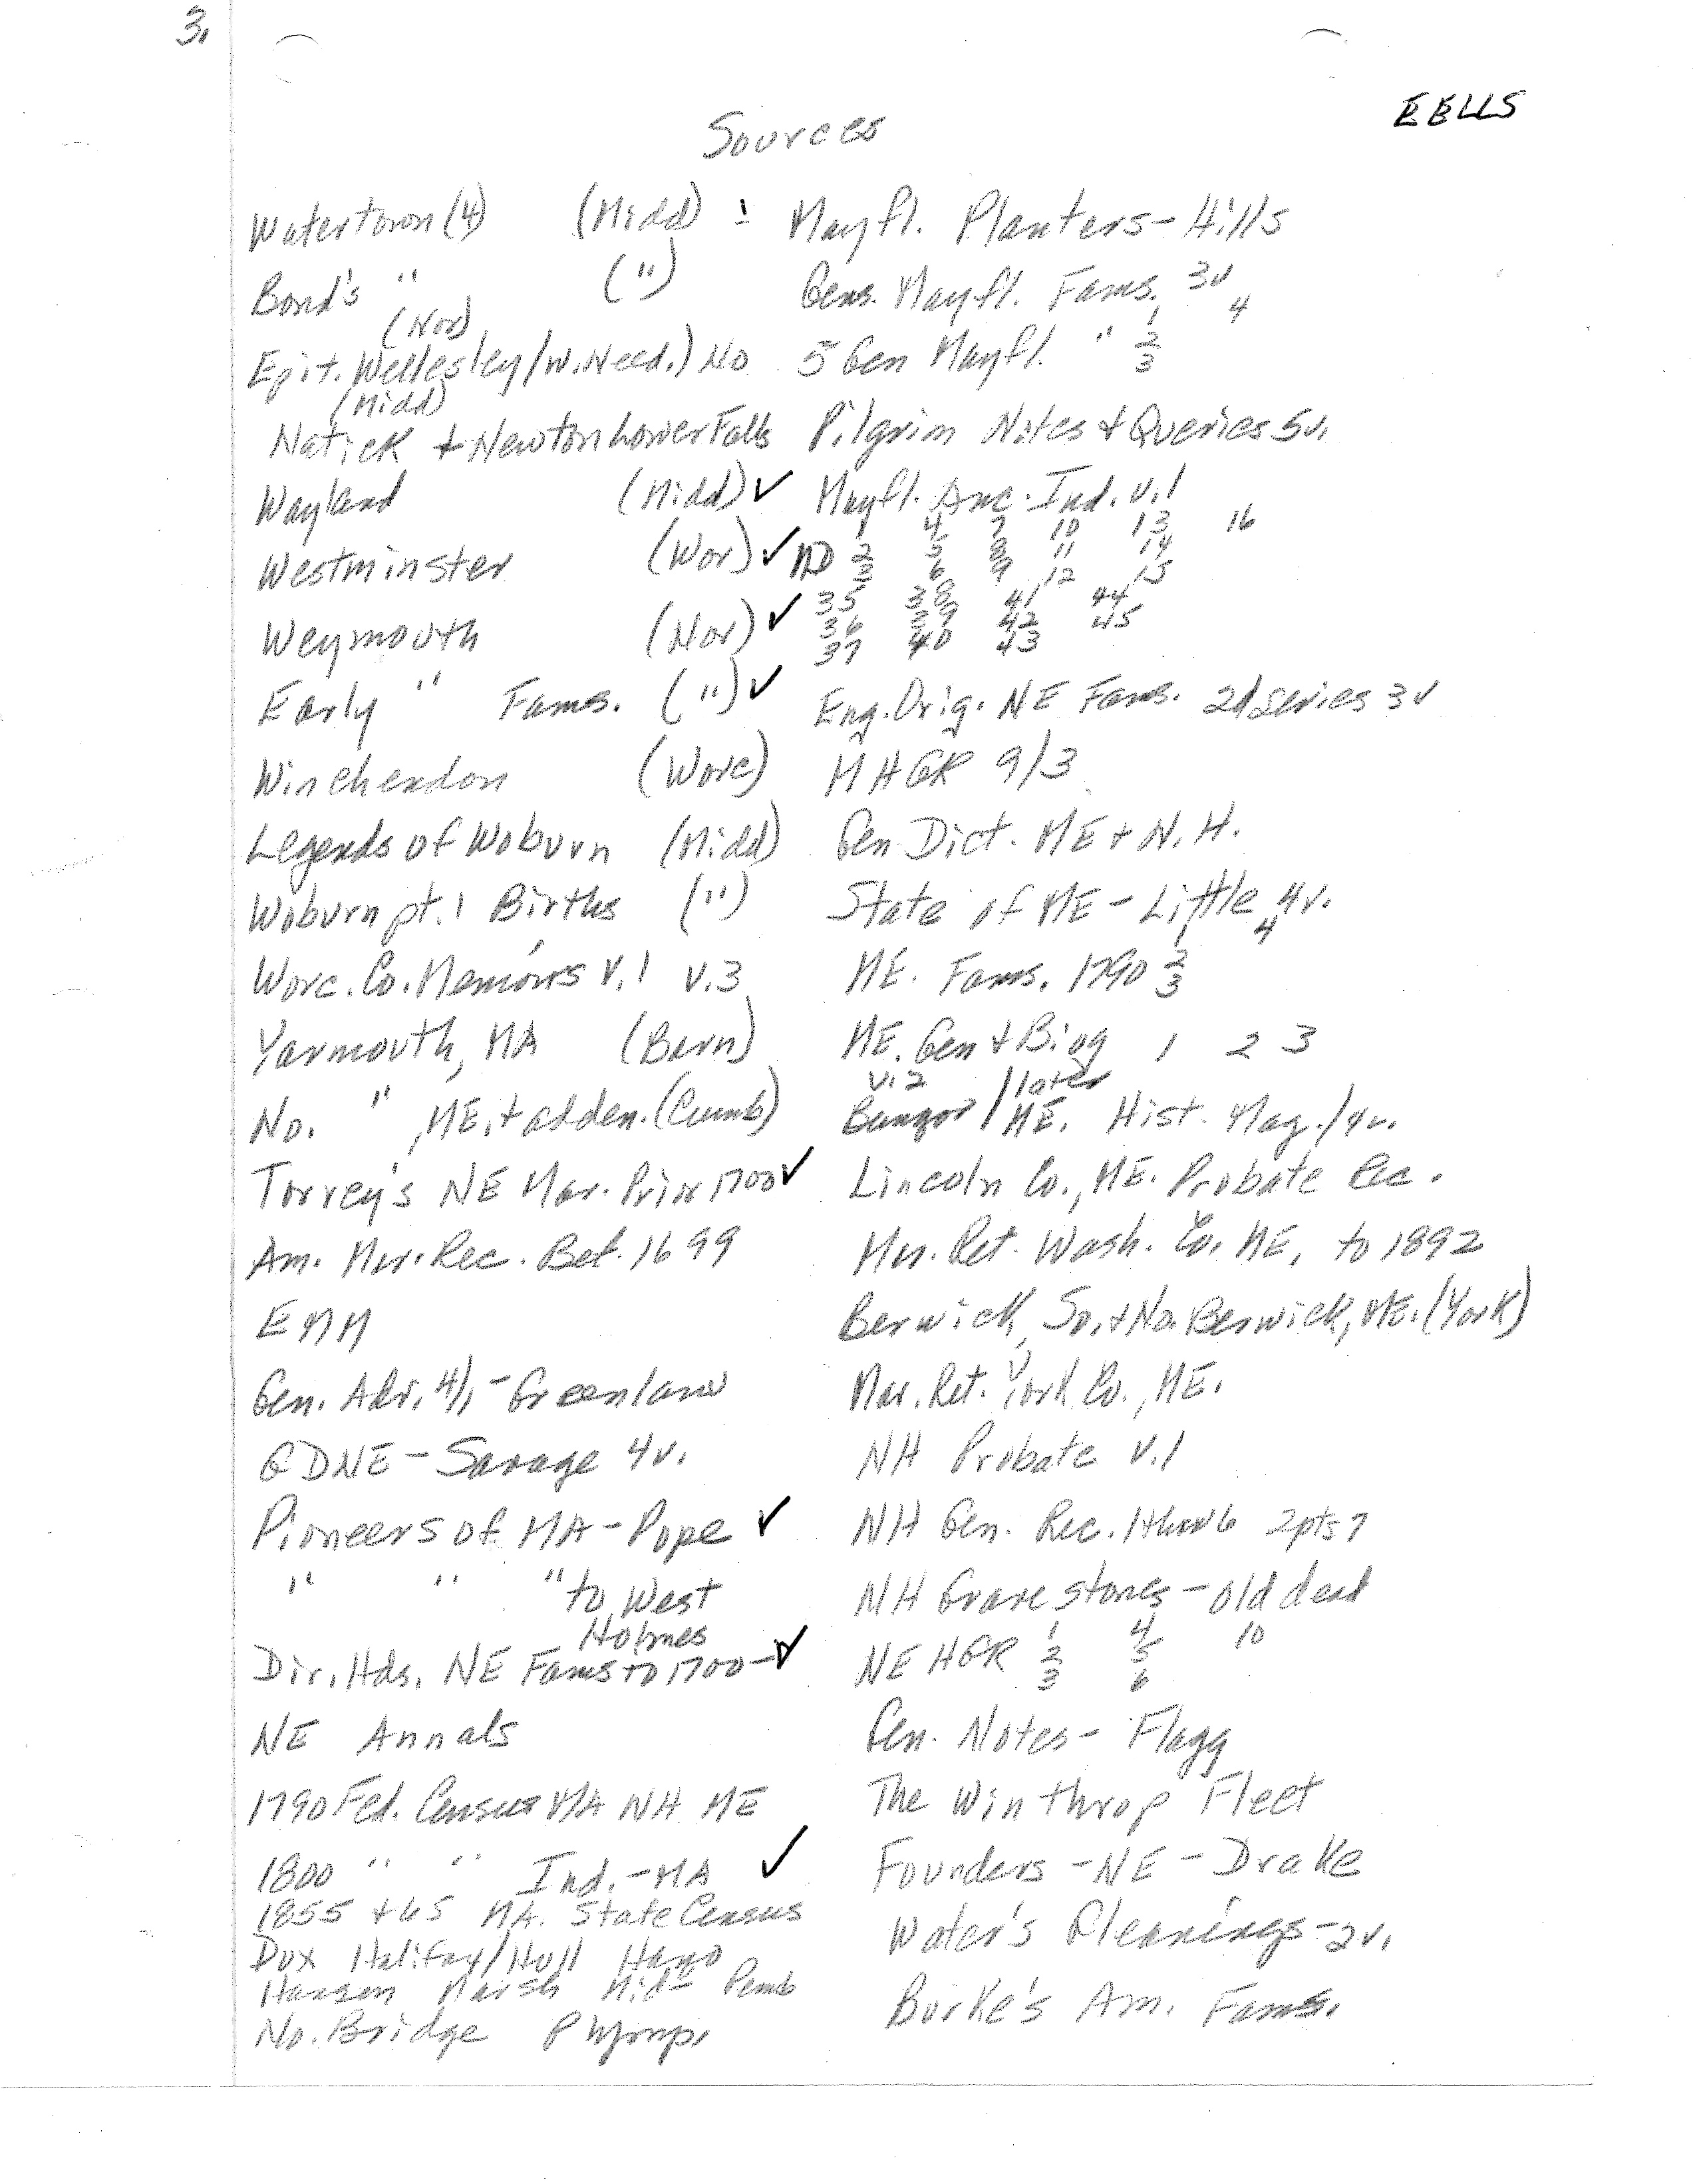 3.
EELLS
Sources
Watertown (4) (Midd) :
Bond's " (")
(Nor)
Epit. Wellesley/W. Need.) No
(Midd)
Natick + Newton Lower Falls
Wayland (Midd) ✓
Westminster (Wor) ✓
Weymouth (Nor) ✓
Early " Fams. (") ✓
Winchendon (Worc)
Legends of Woburn (Midd)
Woburn pt. 1 Births (")
Worc. Co. Memoirs v.1 v.3
Yarmouth, MA (Barn)
No. ", ME. + adden. (Cumb)
Torrey's NE Mar. Prior 1700 ✓
Am. Mar. Rec. Bef. 1699
EMM
Gen. Adv. 4/1 - Greenlaw
GDNE - Savage 4v.
Pioneers of MA - Pope ✓
" " " to West
Holmes
Dir. Hds. NE Fams to 1700 - ✓
NE Annals
1790 Fed. Census MA NH ME
1800 " " Ind. - MA ✓
1855 + 65 MA. State Census
Dux Halifax/Hull Hano
Hanson Marsh Mid- Pemb
No. Bridge Plymp.
Mayfl. Planters - Hills
Gens. Mayfl. Fams. 3v
1 4
5 Gen Mayfl. " 2
3
Pilgrim Notes + Queries 5v.
Mayfl. Anc. Ind. v.1
1 4 7 10 13 16
MD 2 5 8 11 14
3 6 9 12 15
35 38 41 44
36 39 42 45
37 40 43
Eng. Orig. NE Fams. 2d Series 3v
MHGR 9/3
Gen Dict. ME + N.H.
State of ME - Little 4v.
1 4
ME. Fams. 1790 2
3
ME. Gen + Biog 1 2 3
v.2 / later
Bangor / ME. Hist. Mag. / 9v.
Lincoln Co., ME. Probate Rec.
Mar. Ret. Wash. Co. ME, to 1892
Berwick, So. + No. Berwick, ME. (York)
Mar. Ret. York Co., ME.
NH Probate v.1
NH Gen. Rec. 1 thru 6 2pts 7
NH Grave stones - old dead
1 4 10
NEHGR 2 5
3 6
Gen. Notes - Flagg
The Winthrop Fleet
Founders - NE - Drake
Water's Gleanings - 2v.
Burke's Am. Fams.